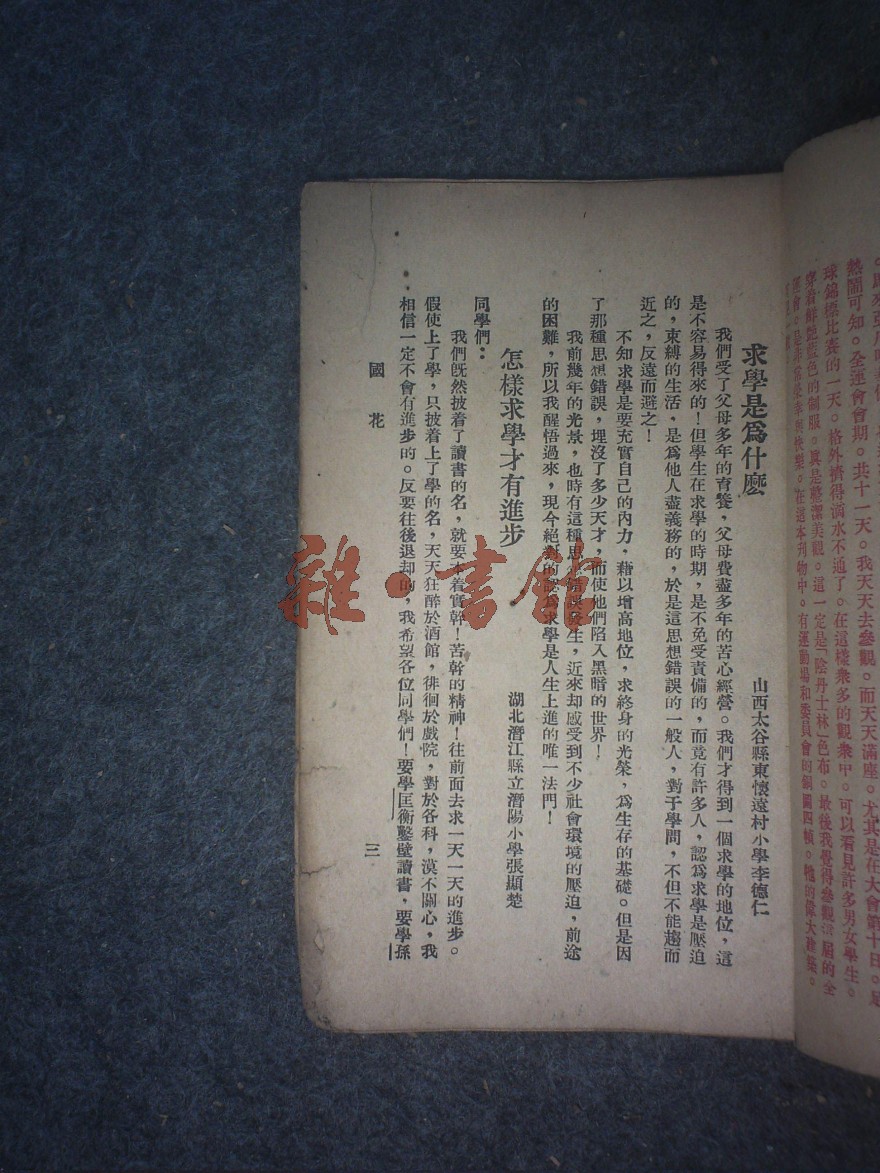 熱鬧可知。全運會會期。共十一天。我天天去參觀。而天天滿座。尤其是在大會第十日。足
球錦標比賽的一天。格外擠得滴水不通了。在這樣衆多的觀衆中。可以看見許多男女學生。
穿着鮮艷藍色的制服。眞是整潔美觀。這一定是「陰丹士林」色布。最後我覺得參觀這屆的全
運會。是非常榮幸與快樂。在這本刊物中。有運動場和委員會的銅圖四幀。牠的偉大建築。
求學是爲什麼
山西太谷縣東懷遠村小學李德仁
我們受了父母多年的育養,父母費盡多年的苦心經營。我們才得到一個求學的地位,這
是不容易得來的!但學生在求學的時期,是不免受責備的,而竟有許多人,認爲求學是壓迫
的,束縛的生活,是爲他人盡義務的,於是這思想錯誤的一般人,對于學問,不但不能趨而
近之,反遠而避之!
不知求學是要充實自己的內力,藉以增高地位,求終身的光榮,爲生存的基礎。但是因
了那種思想錯誤,埋沒了多少天才,而使他們陷入黑暗的世界!
我前幾年的光景,也時有這種思想錯誤發生,近來却感受到不少社會環境的壓迫,前途
的困難,所以我醒悟過來,現今絕對的認爲求學是人生上進的唯一法門!
怎樣求學才有進步
湖北潛江縣立潛陽小學張顯楚
同學們:
我們旣然披着了讀書的名,就要本着實幹!苦幹的精神!往前面去求一天一天的進步。
假使上了學,只披着上了學的名,天天狂醉於酒館,徘徊於戲院,對於各科,漠不關心,我
相信一定不會有進步的。反要往後退却的,我希望各位同學們!要學匡衡鑿壁讀書,要學孫
國花
三
雜·書館